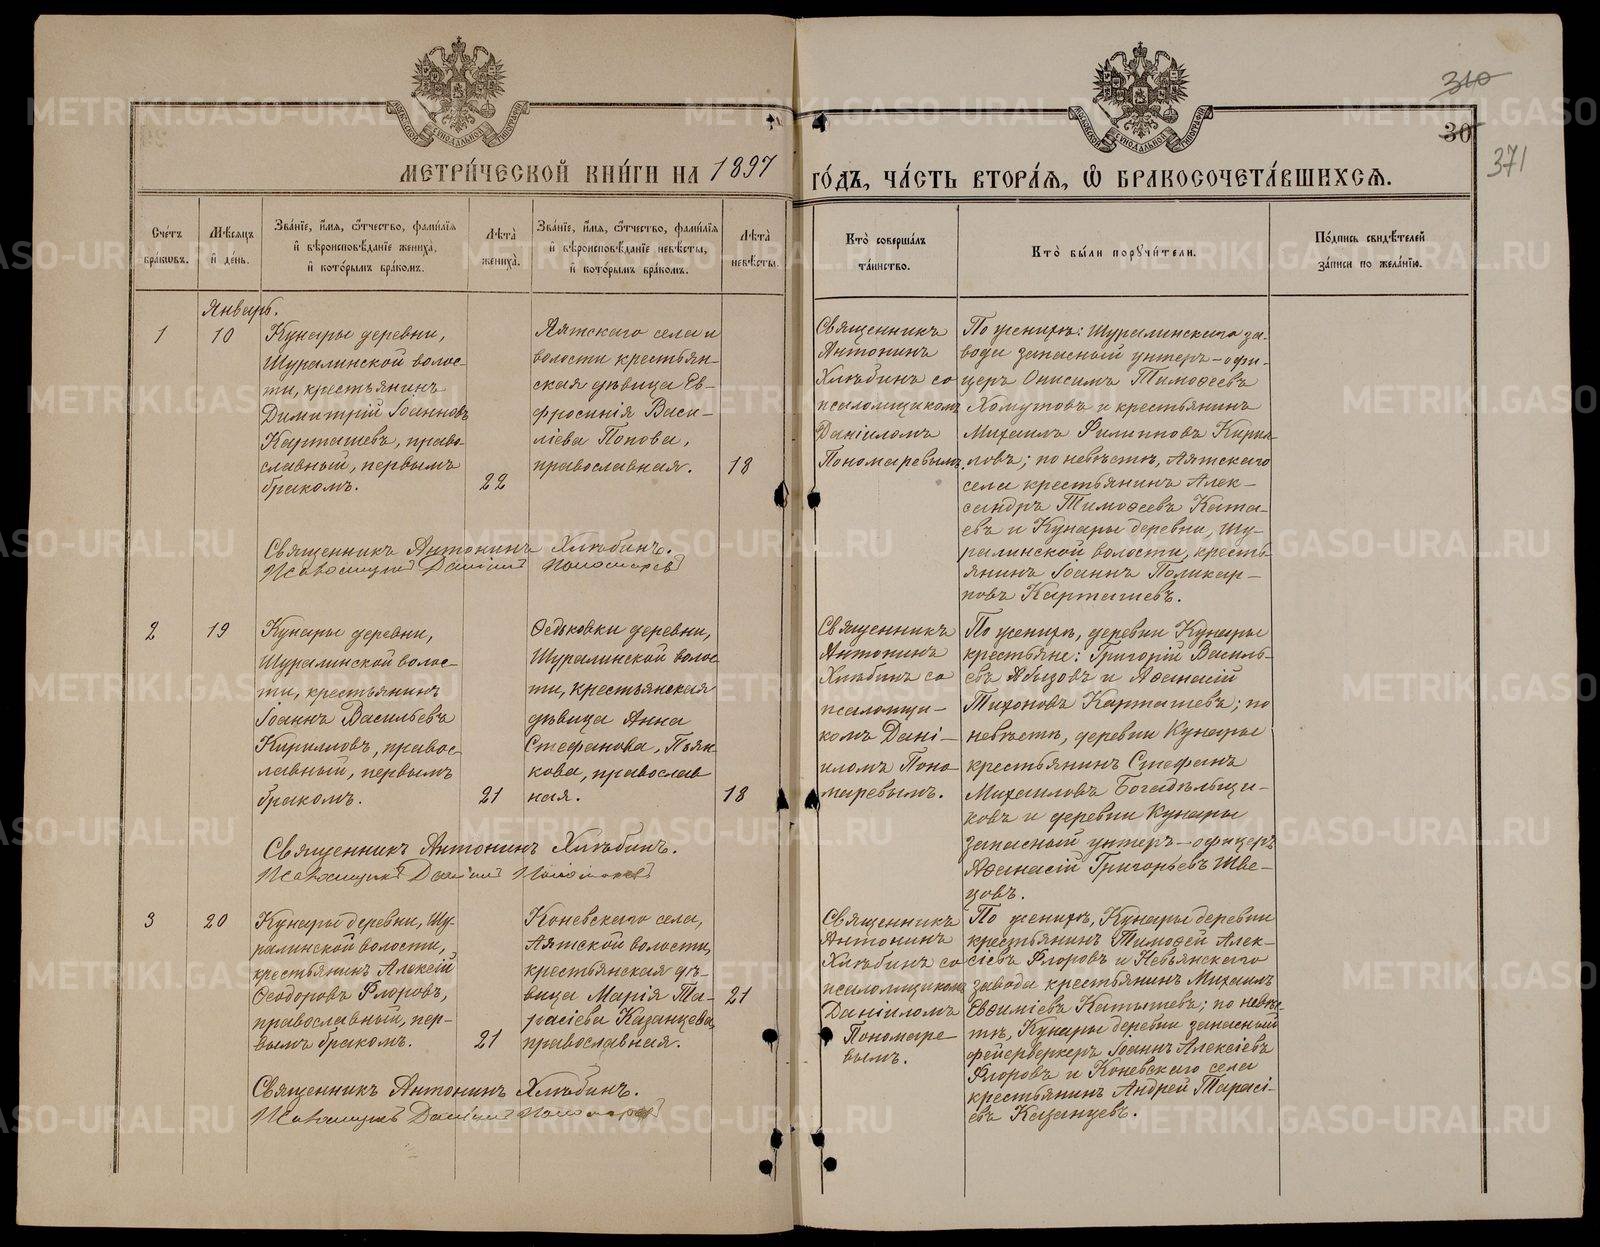 310
30
371
МЕТРИ́ЧЕСКОЙ КНИ́ГИ НА 1897 ГО́ДЪ, ЧА́СТЬ ВТОРА́Я, Ѡ БРАКОСОЧЕТА́ВШИХСЯ.
Сче́тъ бра́кωвъ.
Мѣ́сяцъ и҆ де́нь.
Зва́нїе, и҆́мя, ѻ҆́тчество, фами́лїя
и҆ вѣроисповѣ́данїе жениха̀,
и҆ кото́рымъ бра́комъ.
Лѣ́та̀ жениха̀.
Зва́нїе, и҆́мя, ѻ҆́тчество, фами́лїя
и҆ вѣроисповѣ́данїе невѣ́сты,
и҆ кото́рымъ бра́комъ.
Лѣ́та̀ невѣ́сты.
Кто̀ соверша́лъ
та́инство.
Кто̀ бы́ли порꙋчи́тели.
По́дпись свидѣ́телей
за́писи по жела́нїю.
Январь.
1
10
Кунары деревни,
Шуралинской волос-
ти, крестьянинъ
Димитрій Іоанновъ
Карташевъ, право-
славный, первымъ
бракомъ.
22
Аятскаго села и
волости крестьян-
ская дѣвица Ев-
фросинія Васи-
ліева Попова,
православная.
18
Священникъ
Антонинъ
Хлѣбинъ со
псаломщикомъ
Даніиломъ
Пономаревымъ.
По женихѣ: Шуралинскаго за-
вода запасный унтеръ-офи-
церъ Онисимъ Тимоѳеевъ
Хомутовъ и крестьянинъ
Михаилъ Филипповъ Кирил-
ловъ; по невѣстѣ, Аятскаго
села крестьянинъ Алек-
сандръ Тимоѳеевъ Ката-
евъ и Кунары деревни, Шу-
ралинской волости, кресть-
янинъ Іоаннъ Поликар-
повъ Карташевъ.
Священникъ Антонинъ Хлѣбинъ.
Псаломщикъ Даніилъ Пономаревъ
2
19
Кунары деревни,
Шуралинской волос-
ти, крестьянинъ
Іоаннъ Васильевъ
Кирилловъ, правос-
лавный, первымъ
бракомъ.
21
Ѳедьковки деревни,
Шуралинской волос-
ти, крестьянская
дѣвица Анна
Стефанова, Пьян-
кова, православ
ная.
18
Священникъ
Антонинъ
Хлѣбинъ со
псаломщи-
комъ Дані-
иломъ Поно-
маревымъ.
По женихѣ, деревни Кунары
крестьяне: Григорій Василь-
евъ Абызовъ и Аѳанасій
Тихоновъ Карташевъ; по
невѣстѣ, деревни Кунары
крестьянинъ Стефанъ
Михаиловъ Богадѣльщи-
ковъ и деревни Кунары
запасный унтеръ-офицеръ
Аѳанасій Григорьевъ Шве-
цовъ.
Священникъ Антонинъ Хлѣбинъ.
Псаломщикъ Даніилъ Пономаревъ
3
20
Кунары деревни, Шу-
ралинской волости,
крестьянинъ Алексій
Ѳеодоровъ Флоровъ,
православный, пер-
вымъ бракомъ.
21
Коневскаго села,
Аятской волости,
крестьянская дѣ-
вица Марія Та-
расіева Казанцева,
православная.
21
Священникъ
Антонинъ
Хлѣбинъ со
псаломщикомъ
Даніиломъ
Пономаре-
вымъ.
По женихѣ, Кунары деревни
крестьянинъ Тимоѳей Алек-
сіевъ Флоровъ и Невьянскаго
завода крестьянинъ Михаилъ
Евѳиміевъ Катышевъ; по невѣс-
тѣ, Кунары деревни запасный
фейерверкеръ Іоаннъ Алексіевъ
Флоровъ и Коневскаго села
крестьянинъ Андрей Тарасі-
евъ Казанцевъ.
Священникъ Антонинъ Хлѣбинъ.
Псаломщикъ Даніилъ Пономаревъ
METRIKI.GASO-URAL.RU